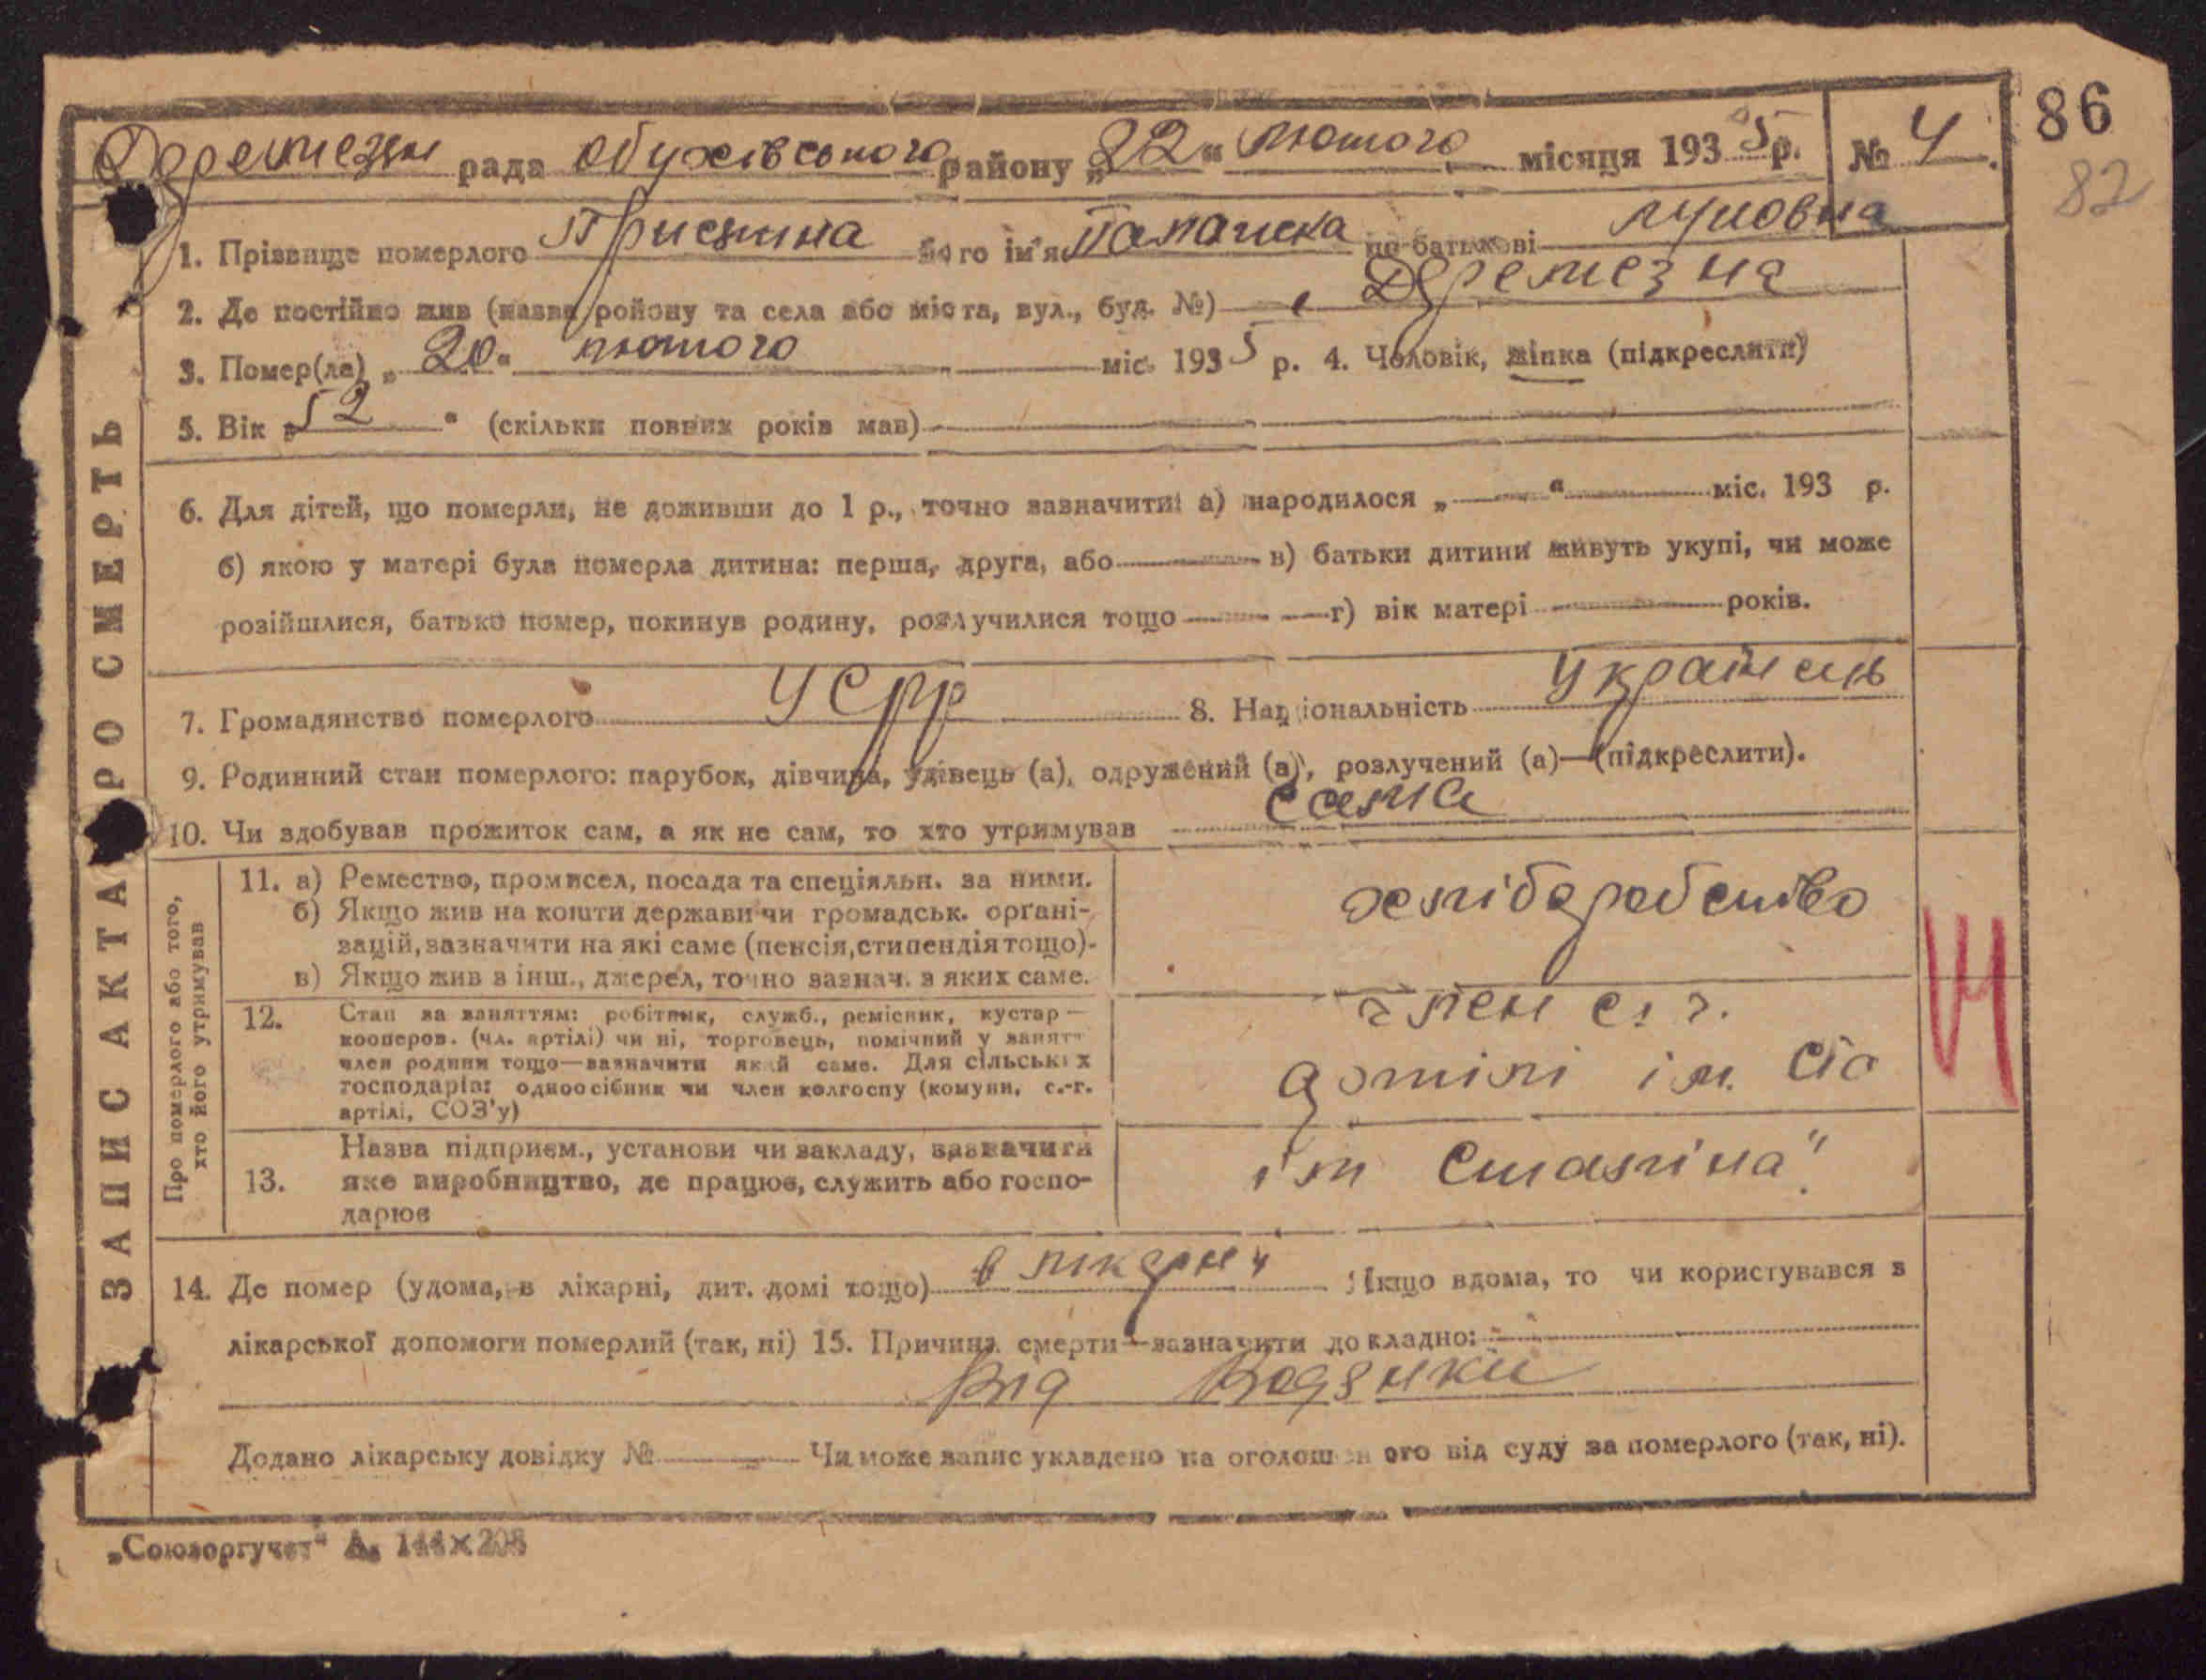 86
82
Деремезн рада Обухівського району „22“ лютого місяця 1935 р. № 4.
1. Прізвище померлого Присяжна його ім'я Палажка по батькові
2. Де постійно жив (назва ройону та села або міста, вул., буд. №) с Деремезна
3. Помер(ла) „20“ лютого міс. 1935 р. 4. Чоловік, жінка (підкреслити)
5. Вік „52“ (скільки повних років мав)
6. Для дітей, що померли, не доживши до 1 р., точно зазначити: а) народилося „ “ міс. 193 р.
б) якою у матері була померла дитина: перша, друга, або в) батьки дитини живуть укупі, чи може
розійшлися, батько помер, покинув родину, розлучилися тощо г) вік матері років.
7. Громадянство померлого УСРР 8. Національність Українець
9. Родинний стан померлого: парубок, дівчина, удівець (а), одружений (а), розлучений (а)—(підкреслити).
10. Чи здобував прожиток сам, а як не сам, то хто утримував сама
ЗАПИС АКТА ПРО СМЕРТЬ
Про померлого або того,
хто його утримував
11. а) Ремество, промисел, посада та спеціяльн. за ними.
б) Якщо жив на кошти держави чи громадськ. орґані-
зацій, зазначити на які саме (пенсія, стипендія тощо).
в) Якщо жив з інш., джерел, точно зазнач. з яких саме.
хліборобство
12. Стан за заняттям: робітник, служб., ремісник, кустар—
кооперов. (чл. артілі) чи ні, торговець, помічний у занятт
член родини тощо—зазначити який саме. Для сільських
господарів: одноосібник чи член колгоспу (комуни, с.-г.
артілі, СОЗ'у)
член с. г.
артілі ім.
13. Назва підприєм., установи чи закладу, зазначити
яке виробництво, де працює, служить або госпо-
дарює
ім Сталіна"
14. Де помер (удома, в лікарні, дит. домі тощо) в лікарні Якщо вдома, то чи користувався з
лікарської допомоги померлий (так, ні) 15. Причина смерти—зазначити докладно:
Від Водянки
Додано лікарську довідку № Чи може запис укладено на оголошен ого від суду за померлого (так, ні).
„Союзоргучет“ А. 144×208